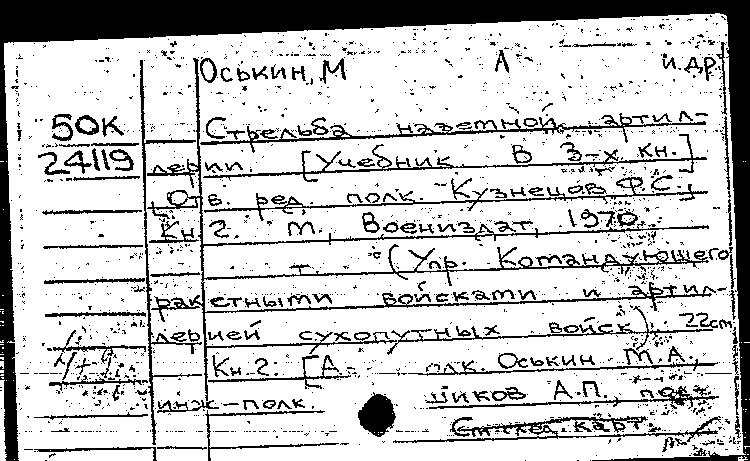 Оськин, М А и др
50К Стрельба наземной артил-
24119 лерии. [Учебник. В 3-х кн.]
[Отв. ред. полк. Кузнецов Ф.С.]
Кн 2. М., Воениздат, 1970.
(Упр. Командующего
ракетными войсками и артил-
лерией сухопутных войск). 22см
Кн. 2. [А. Оськин М.А.,
инж-полк. А.П.,
След. карт.